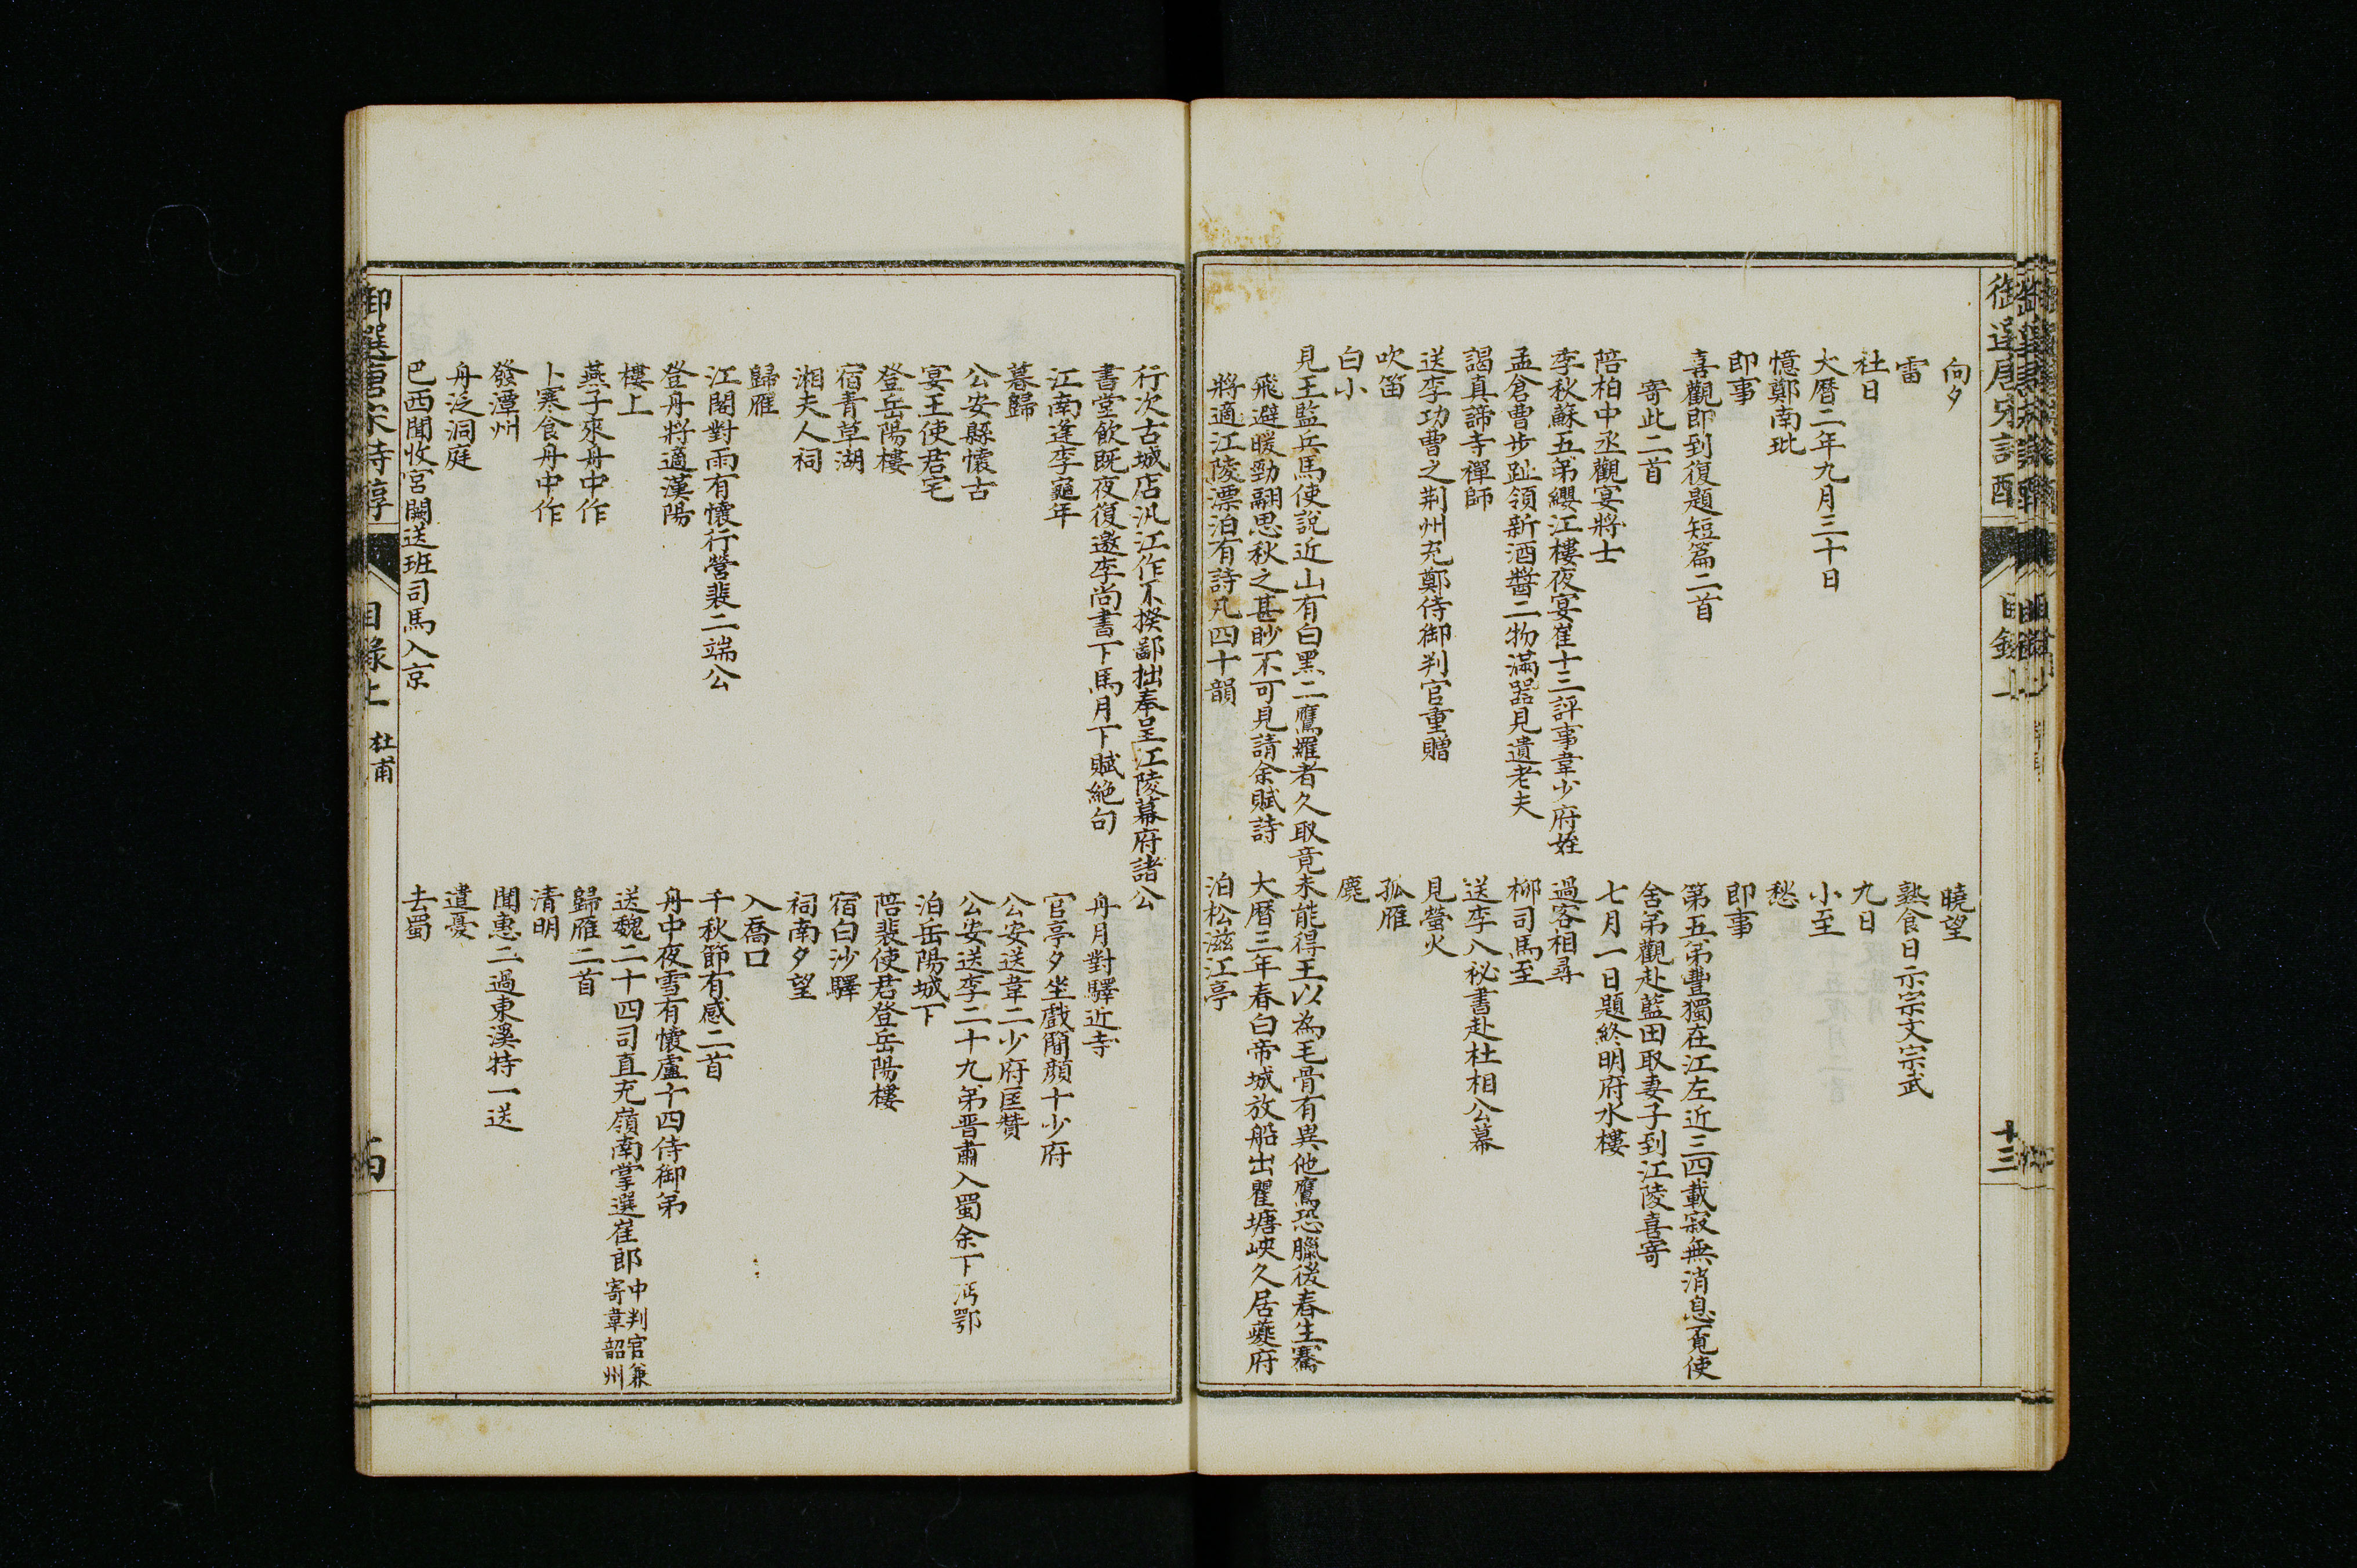 向夕
曉望
雷
熟食日示宗文宗武
社日
九日
大曆二年九月三十日
小至
憶鄭南玭
愁
即事
即事
喜觀即到復題短篇二首
第五弟豐獨在江左近三四載寂無消息覓使
寄此二首
舍弟觀赴藍田取妻子到江陵喜寄
陪柏中丞觀宴將士
七月一日題終明府水樓
李秋蘇五弟纓江樓夜宴崔十三評事韋少府姪
過客相尋
孟倉曹步趾領新酒醬二物滿器見遺老夫
柳司馬至
謁真諦寺禪師
送李八祕書赴杜相公幕
送李功曹之荆州充鄭侍御判官重贈
見螢火
吹笛
孤雁
白小
麂
見王監兵馬使說近山有白黑二鷹羅者久取竟未能得王以為毛骨有異他鷹恐臘後春生騫
飛避暖勁翮思秋之甚眇不可見請余賦詩
大曆三年春白帝城放船出瞿塘峽久居夔府
將適江陵漂泊有詩凡四十韻
泊松滋江亭
御選唐宋詩醇
目錄上
十三
行次古城店汎江作不揆鄙拙奉呈江陵幕府諸公
書堂飲既夜復邀李尚書下馬月下賦絶句
舟月對驛近寺
江南逢李龜年
官亭夕坐戲簡顔十少府
暮歸
公安送韋二少府匡贊
公安縣懷古
公安送李二十九弟晋肅入蜀余下沔鄂
宴王使君宅
泊岳陽城下
登岳陽樓
陪裴使君登岳陽樓
宿青草湖
宿白沙驛
湘夫人祠
祠南夕望
歸雁
入喬口
江閣對雨有懷行營裴二端公
千秋節有感二首
登舟將適漢陽
舟中夜雪有懷盧十四侍御弟
樓上
送魏二十四司直充嶺南掌選崔郎中判官兼寄韋韶州
燕子來舟中作
歸雁二首
小寒食舟中作
清明
發潭州
聞惠二過東溪特一送
舟泛洞庭
遣憂
巴西聞收宮闕送班司馬入京
去蜀
御選唐宋詩醇
目錄上
杜甫